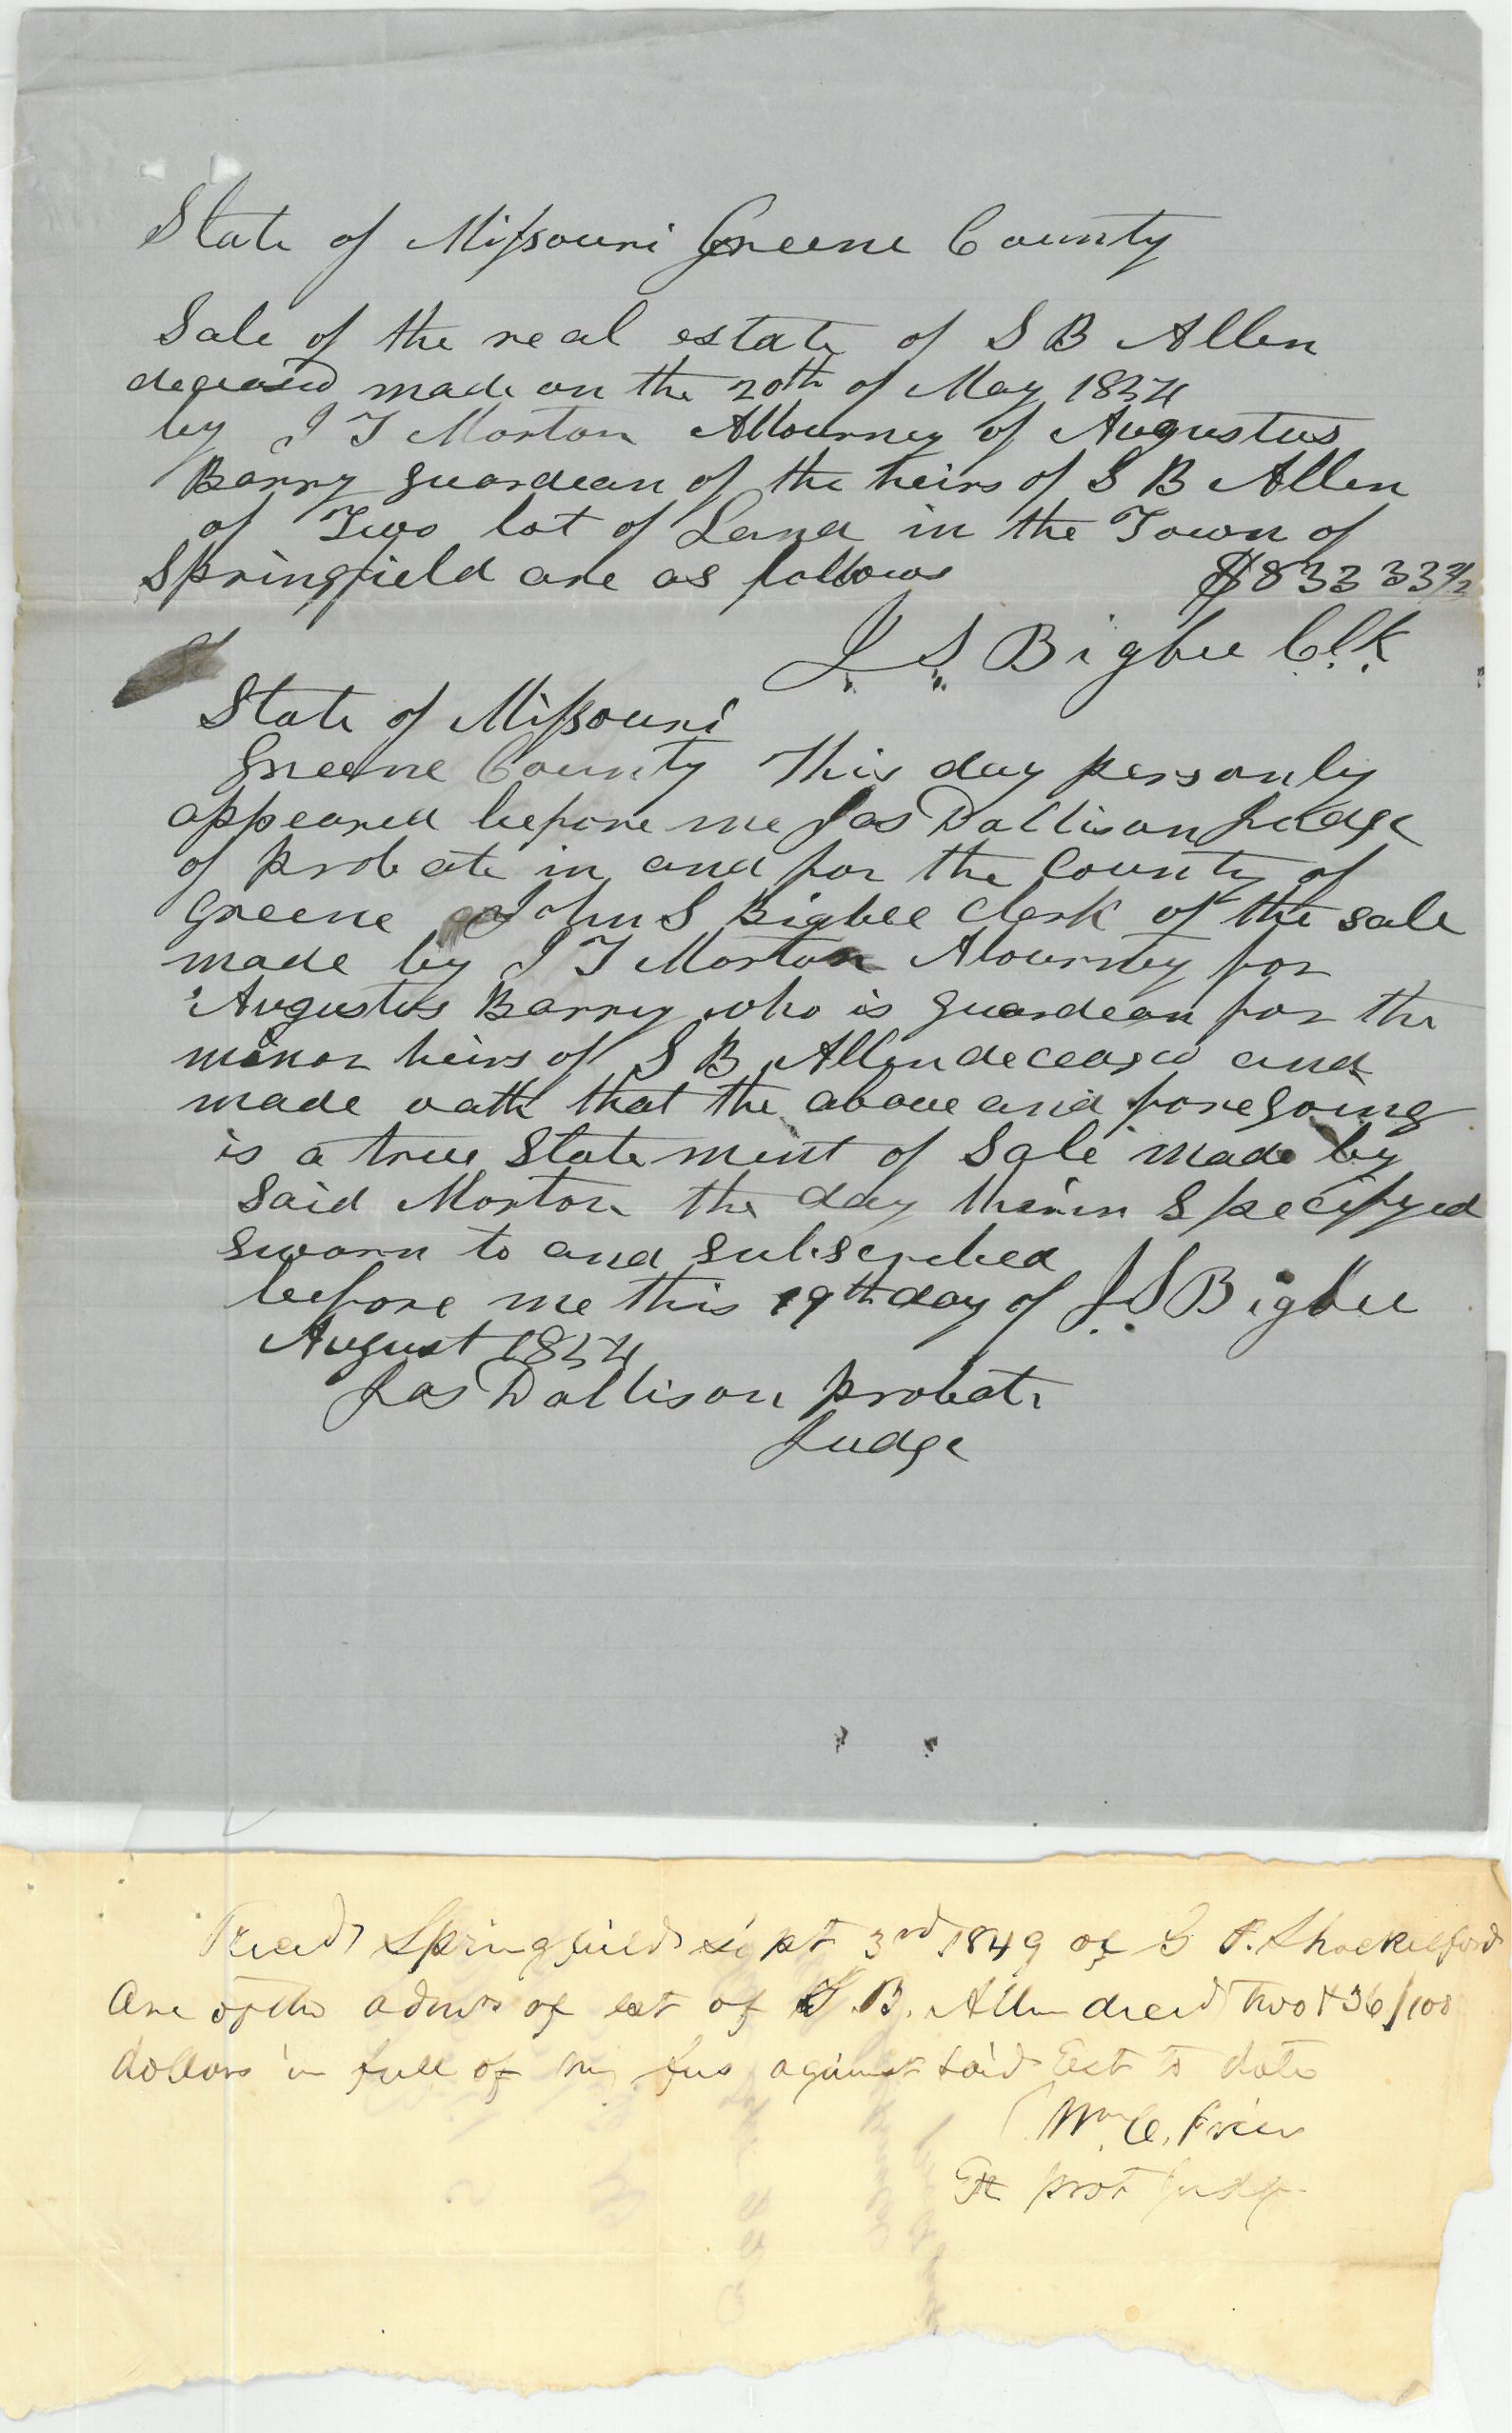 State of Missouri Greene County
Sale of the real estate of S B Allen
deceased made on the 20th of May 1854
by J T Morton Attourney of Augustus
Barry guardean of the heirs of S B Allen
of Two lot of Land in the Town of
Springfield are as follows $833 33
J. S. Bigbee Clk
State of Missouri
Greene County This day personly
appeared before me Jas Dollison Judge
of probate in and for the County of
Greene John S Bigbee Clerk of the sale
made by J T Morton Atourney for
Augustus Barry who is guardean for the
minor heirs of S B Allen deceased and
made oath that the above and foregoing
is a true Statement of Sale made by
Said Morton the day therin Specifyed
Sworn to and subscribed
before me this 19th day of J. S. Bigbee
August 1854
Jas Dollison probate
Judge
Recd Springfield Sept 3rd 1849 of G P. Shackelford
One of the admrs of est of S. B. Allen decd two & 36/100
dollars in full of my fees against said Est to date
Wm. C. Price
Ex prob judge